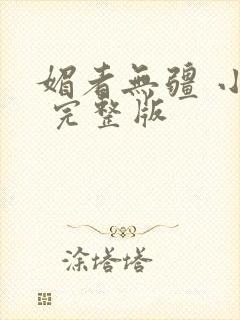 媚者無疆 小
完整版
涂塔塔